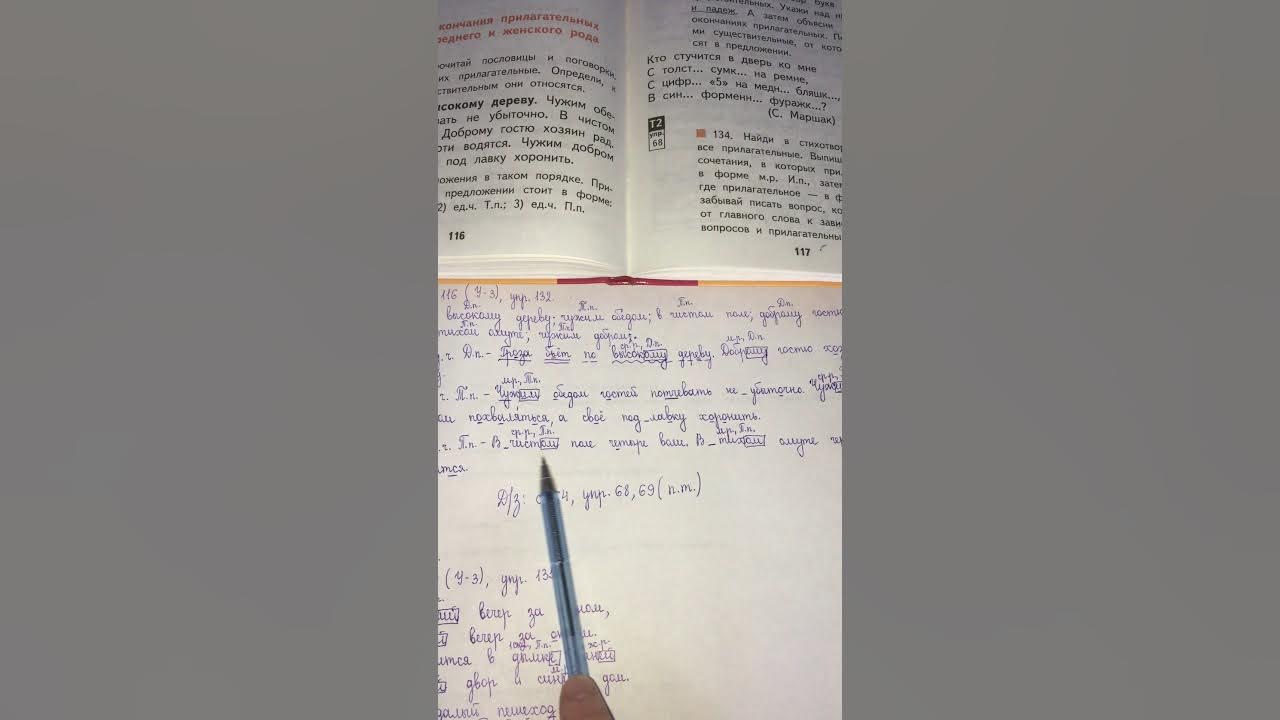 кончания прилагательных
реднего и женского рода
очитай пословицы и поговорки.
их прилагательные. Определи, к
ствительным они относятся.
ысокому дереву. Чужим обе-
вать не убыточно. В чистом
Доброму гостю хозяин рад.
рти водятся. Чужим добром
под лавку хоронить.
ложения в таком порядке. При-
предложении стоит в форме:
2) ед.ч. Т.п.; 3) ед.ч. П.п.
116
букв
Укажи над
и падеж. А затем объясни
окончаниях прилагательных. По
ми существительные, от кото
сят в предложении.
Кто стучится в дверь ко мне
С толст... сумк... на ремне,
С цифр... «5» на медн... бляшк...,
В син... форменн... фуражк...?
(С. Маршак)
Т2
упр.
68
134. Найди в стихотвор
все прилагательные. Выпиш
сочетания, в которых при
в форме м.р. И.п., затем
где прилагательное — в ф
забывай писать вопрос, ко
от главного слова к зави
вопросов и прилагательны
117
116 (У-3), упр. 132.
Д.п. Т.п. П.п. Д.п.
высокому дереву; чужим обедом; в чистом поле; доброму гостю
П.п. Т.п.
тихом омуте; чужим добром;
ср.р., Д.п. м.р., Д.п.
ч. Д.п.- Гроза бьёт по высокому дереву. Доброму гостю хоз
м.р., Т.п. ср.р.,
ч. Т.п.- Чужим обедом гостей потчевать не убыточно. Чужим
ом похваляться, а своё под лавку хоронить.
ср.р., П.п. м.р., П.п.
ч. П.п.- В чистом поле четыре воли. В тихом омуте чер
ятся.
Д/з: 4, упр. 68, 69 (п.т.)
(У-3), упр. 133
вечер за
вечер за
П.п. ж.р.
ится в дымке
двор и дом.
далый пешеход